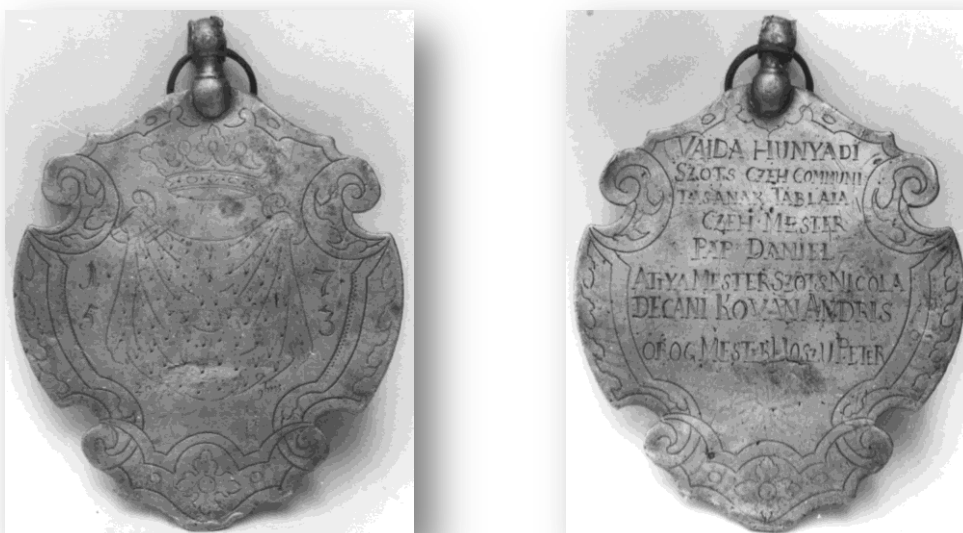 1 7
5 3
VAIDA HUNYADI
SZOTS CZEH COMMUNI
TASANAK TABLAIA
CZEH MESTER
PAP DANIEL
ATTYA MESTER SZOTS NICOLA
DECANI KOVAN ANDRIS
OROG MESTER HOSZU PETER